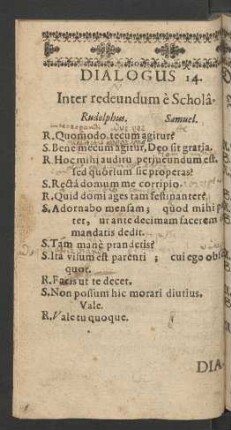 DIALOGUS 14.
Inter redeundum è Scholâ.
Rudolphus. Samuel.
R. Quomodo tecum agitur?
S. Bene mecum agitur, Deo sit gratia.
R. Hoc mihi auditu perjucundum est.
sed quorsum sic properas?
S. Rectà domum me corripio.
R. Quid domi ages tam festinanter?
S. Adornabo mensam; quod mihi pater,
ut ante decimam facerem
mandatis dedit.
S. Tam manè prandetis?
S. Ita visum est parenti; cui ego
quor.
R. Facis ut te decet.
S. Non possum hic morari diutius.
Vale.
R. Vale tu quoque.
DIA-